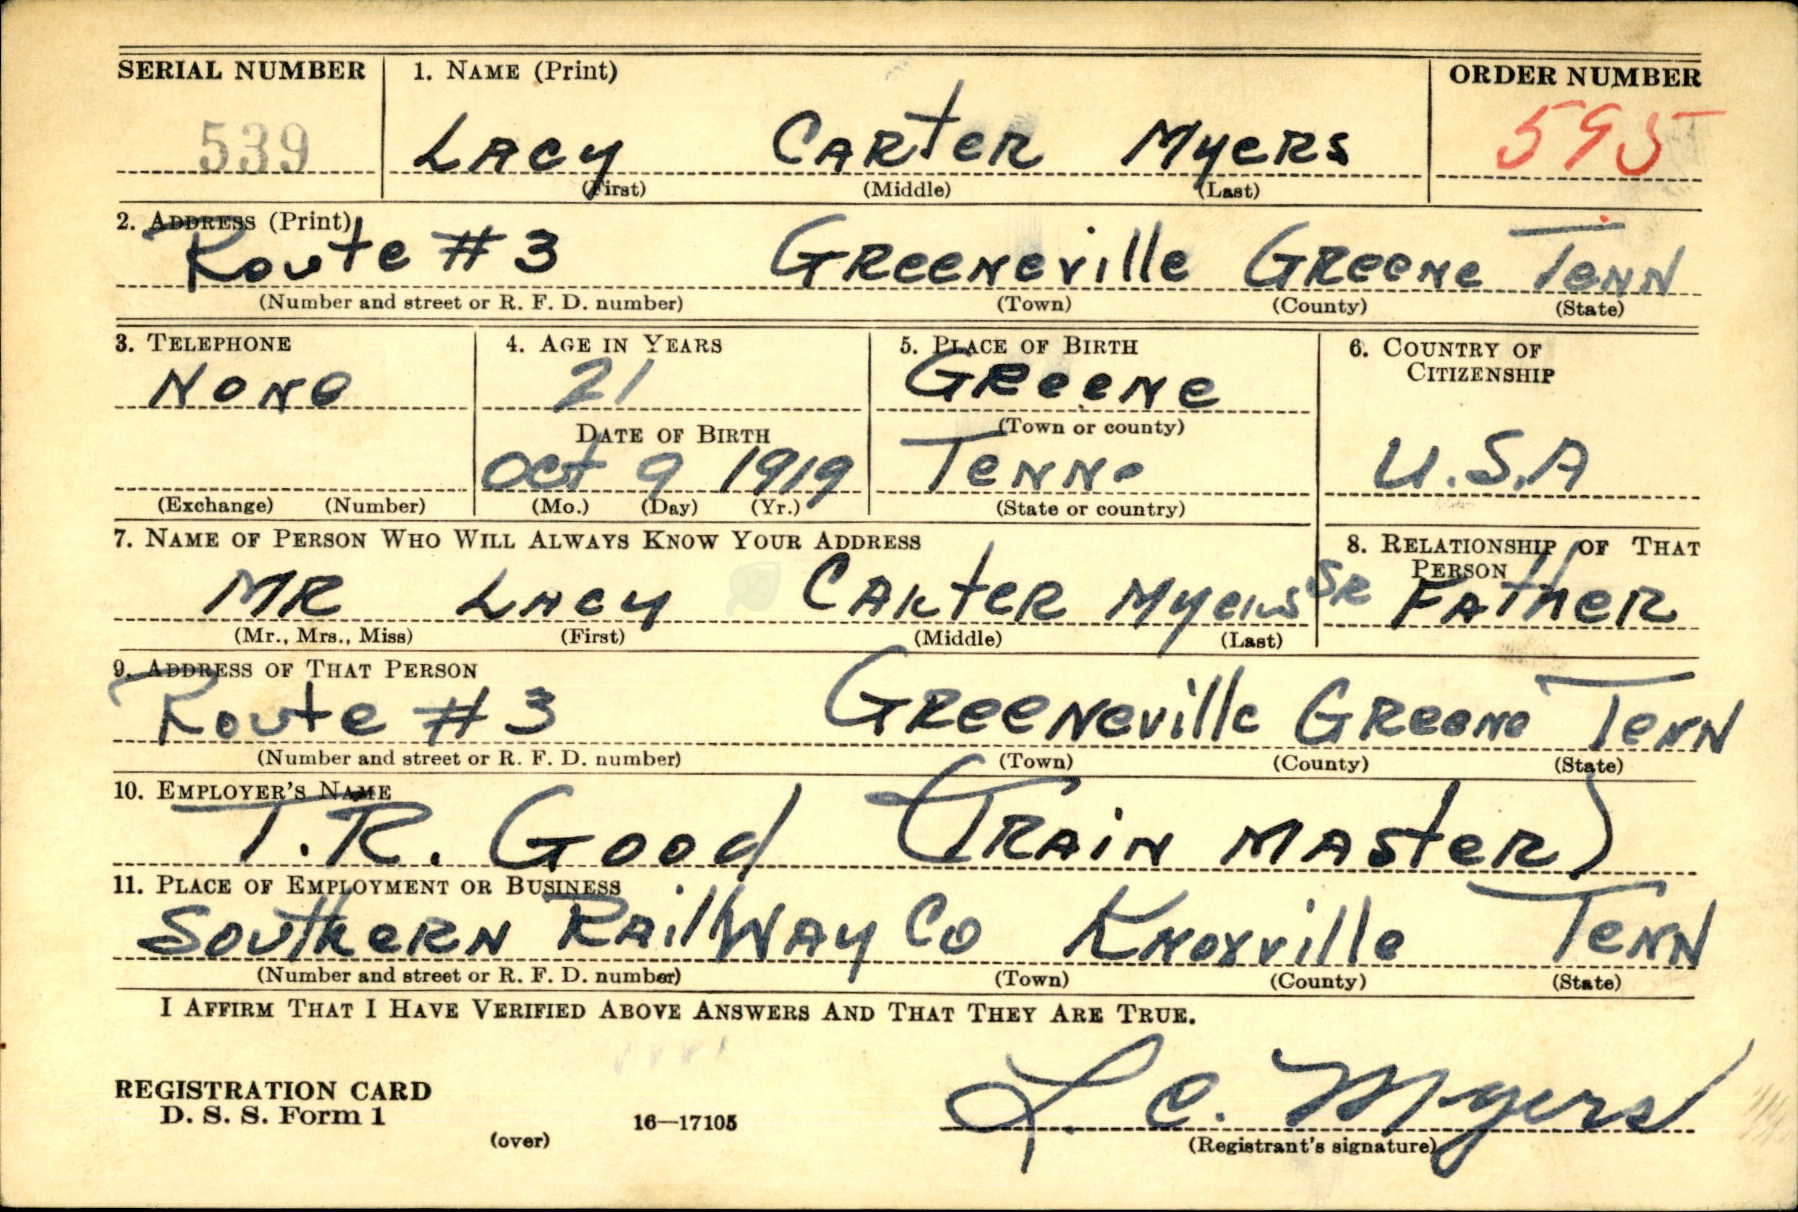 SERIAL NUMBER 1. NAME (Print) ORDER NUMBER
539 LACY CARTER MYERS 595
(First) (Middle) (Last)
2. ADDRESS (Print)
Route # 3 GREENEVILLE GREENE TENN
(Number and street or R. F. D. number) (Town) (County) (State)
3. TELEPHONE 4. AGE IN YEARS 5. PLACE OF BIRTH 6. COUNTRY OF CITIZENSHIP
NONE 21 GREENE
DATE OF BIRTH (Town or county)
Oct 9 1919 TENN. U.S.A
(Exchange) (Number) (Mo.) (Day) (Yr.) (State or country)
7. NAME OF PERSON WHO WILL ALWAYS KNOW YOUR ADDRESS 8. RELATIONSHIP OF THAT PERSON
MR LACY CARTER MYERS SR FATHER
(Mr., Mrs., Miss) (First) (Middle) (Last)
9. ADDRESS OF THAT PERSON
Route # 3 GREENEVILLE GREENE TENN
(Number and street or R. F. D. number) (Town) (County) (State)
10. EMPLOYER'S NAME
T.R. GOOD (TRAIN MASTER)
11. PLACE OF EMPLOYMENT OR BUSINESS
SOUTHERN RAILWAY CO KNOXVILLE TENN
(Number and street or R. F. D. number) (Town) (County) (State)
I AFFIRM THAT I HAVE VERIFIED ABOVE ANSWERS AND THAT THEY ARE TRUE.
REGISTRATION CARD
D. S. S. Form 1 16—17105 L. C. Myers
(over) (Registrant's signature)